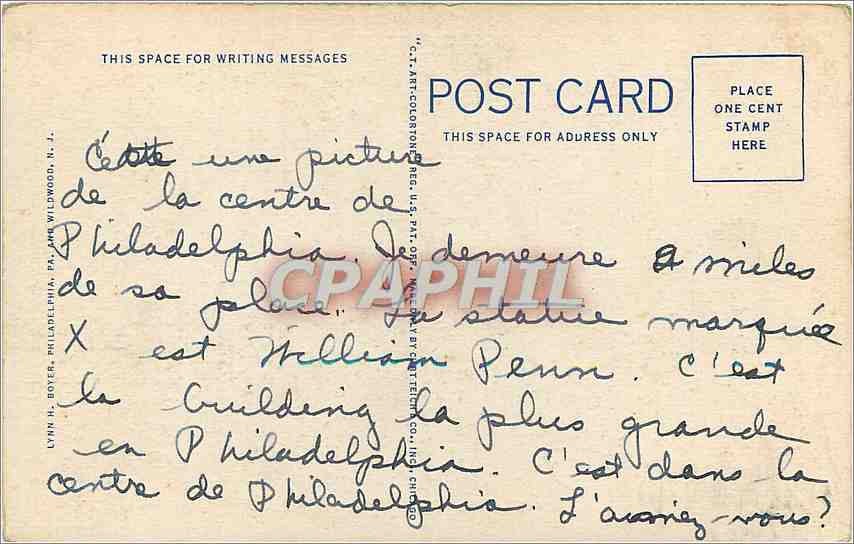 THIS SPACE FOR WRITING MESSAGES
POST CARD
THIS SPACE FOR ADDRESS ONLY
PLACE
ONE CENT
STAMP
HERE
LYNN H. BOYER, PHILADELPHIA, PA. AND WILDWOOD, N. J.
"C.T. ART-COLORTONE" REG. U.S. PAT. OFF. MADE ONLY BY CURT TEICH & CO., INC., CHICAGO
une picture
de la centre de
Philadelphia. Je demeure miles
de sa place. La statue marquée
X est William Penn. C'est
la building la plus grande
en Philadelphia. C'est dans la
centre de Philadelphia. L'aimez-vous?
CPAPHIL